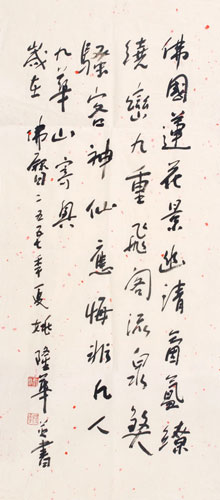 佛國蓮花景幽清氤氲繚
繞巒九重飛閣流泉繁
騷客神仙應悔難凡人
九華山寄興
歲在佛曆二五五七年夏 姚隆華書